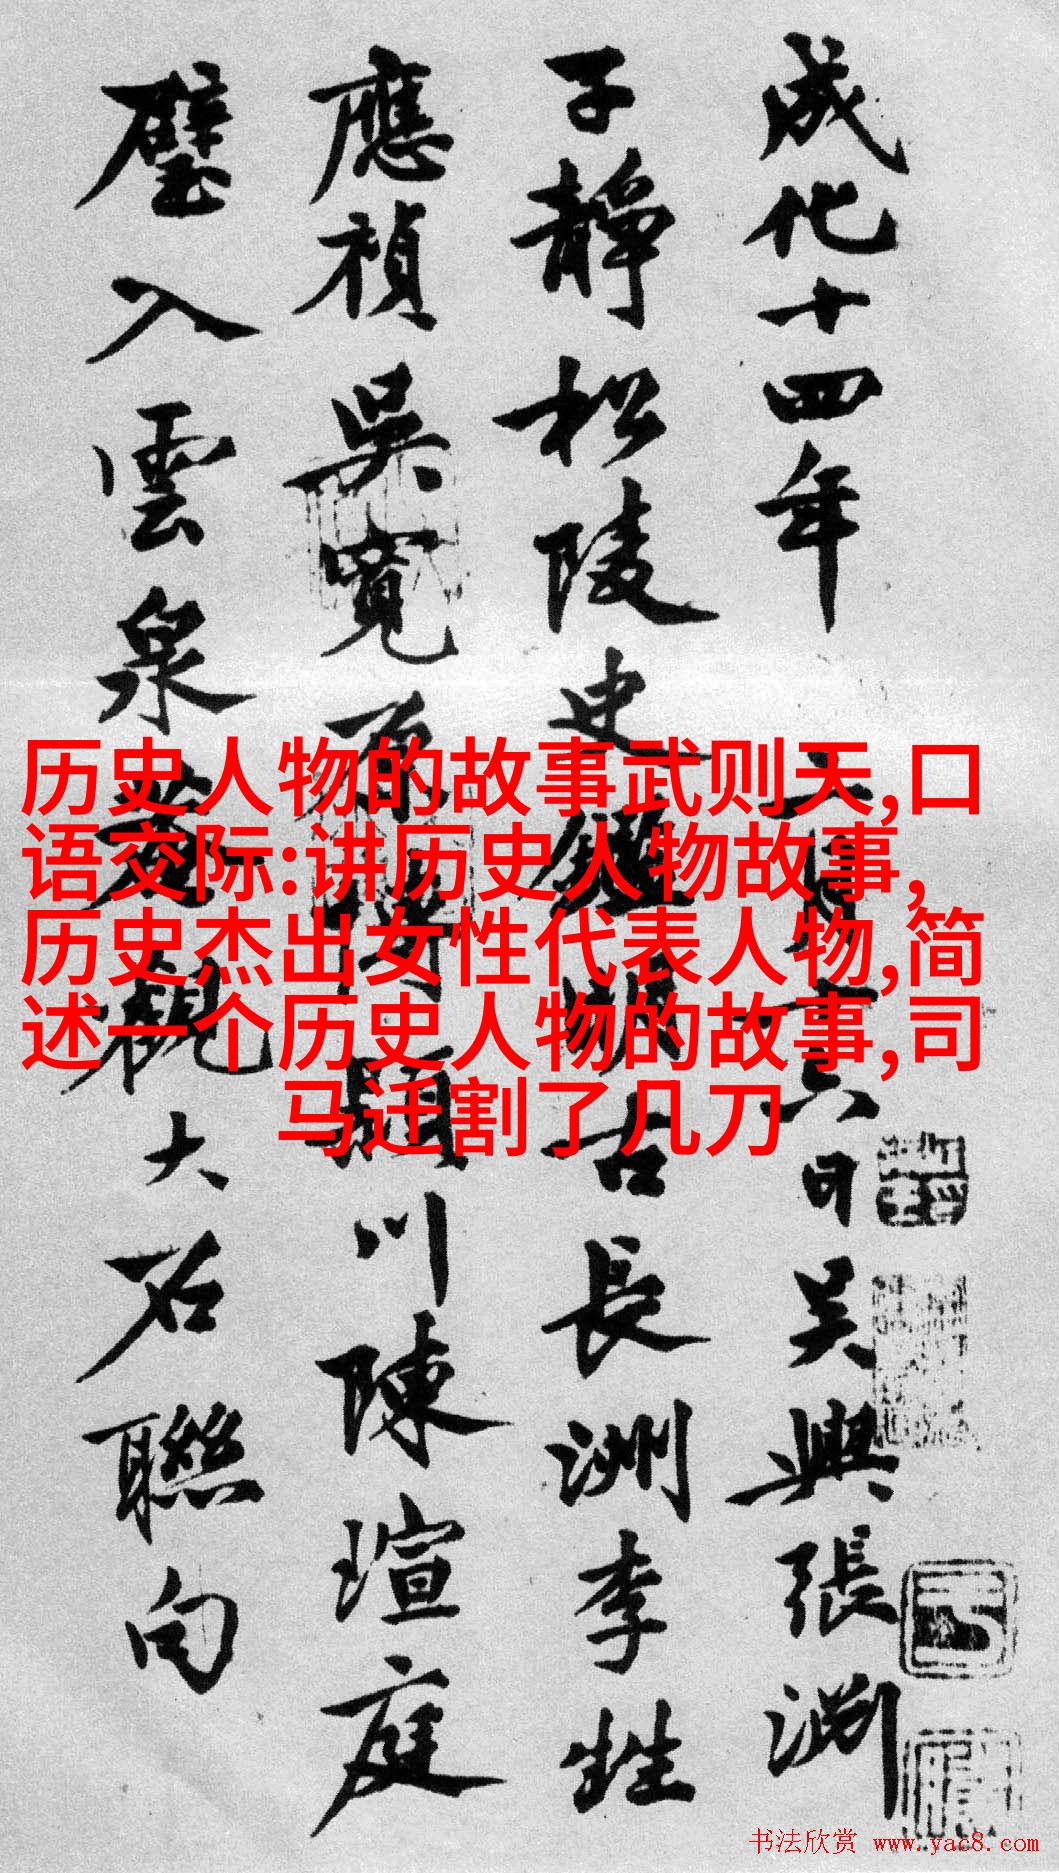 成化十四年六月十六日吴興張淵
子靜松陵史鑑明古長洲李甡
應禎吳寬原博潁川陳瑄庭
璧入雲泉菴觀大石聯句
历史人物的故事武则天,口
语交际:讲历史人物故事,
历史杰出女性代表人物,简
述一个历史人物的故事,司
马迁割了几刀
书法欣赏 www.yac8.com